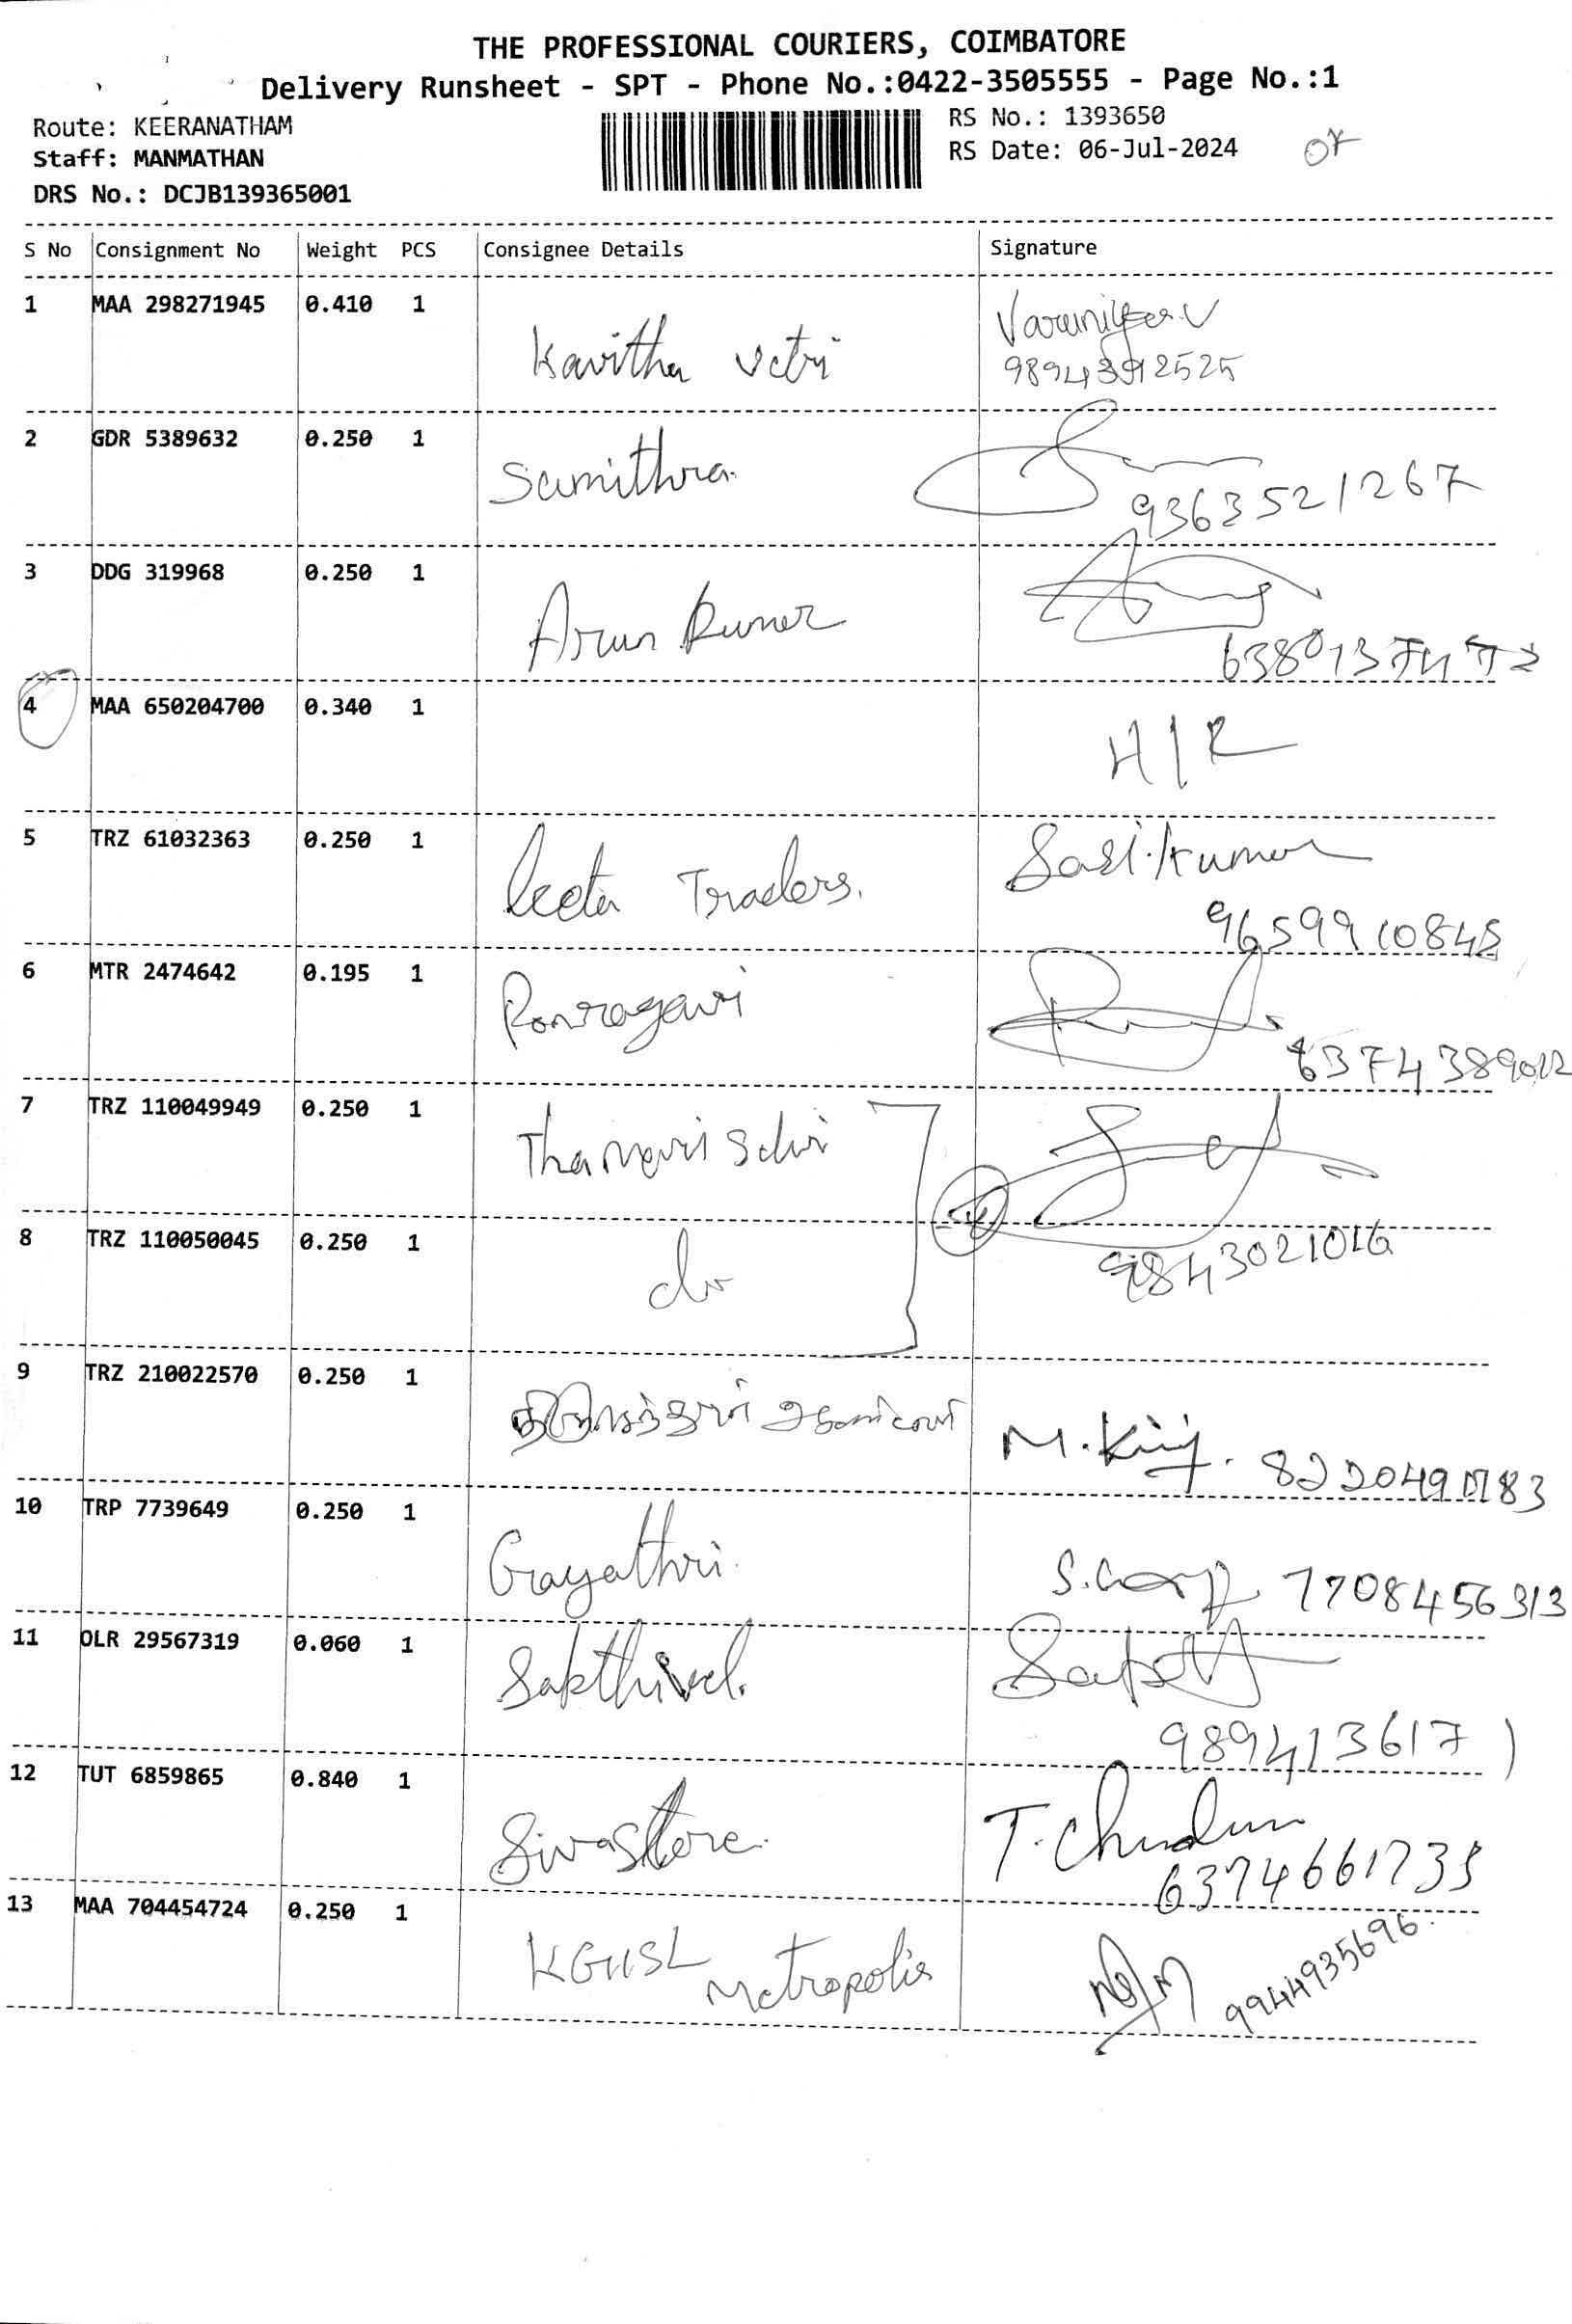 THE PROFESSIONAL COURIERS, COIMBATORE
Delivery Runsheet - SPT - Phone No.:0422-3505555 - Page No.:1
Route: KEERANATHAM
Staff: MANMATHAN
DRS No.: DCJB139365001
RS No.: 1393650
RS Date: 06-Jul-2024
S No Consignment No Weight PCS Consignee Details Signature
1 MAA 298271945 0.410 1
Kavitha Vetri
2 GDR 5389632 0.250 1
Sumithra.
9363521267
3 DDG 319968 0.250 1
Arun Kumar
4 MAA 650204700 0.340 1
H/R
5 TRZ 61032363 0.250 1
Traders. Sasi.kumar
9659910848
6 MTR 2474642 0.195 1
Ponragavi
7 TRZ 110049949 0.250 1
Selvi
8 TRZ 110050045 0.250 1
9843021016
9 TRZ 210022570 0.250 1
M.
10 TRP 7739649 0.250 1
Gayathri. 7708456313
11 OLR 29567319 0.060 1
Sakthivel.
9894136171
12 TUT 6859865 0.840 1
Siva Store.
6374661735
13 MAA 704454724 0.250 1
KGISL Metropolis
9944935696.